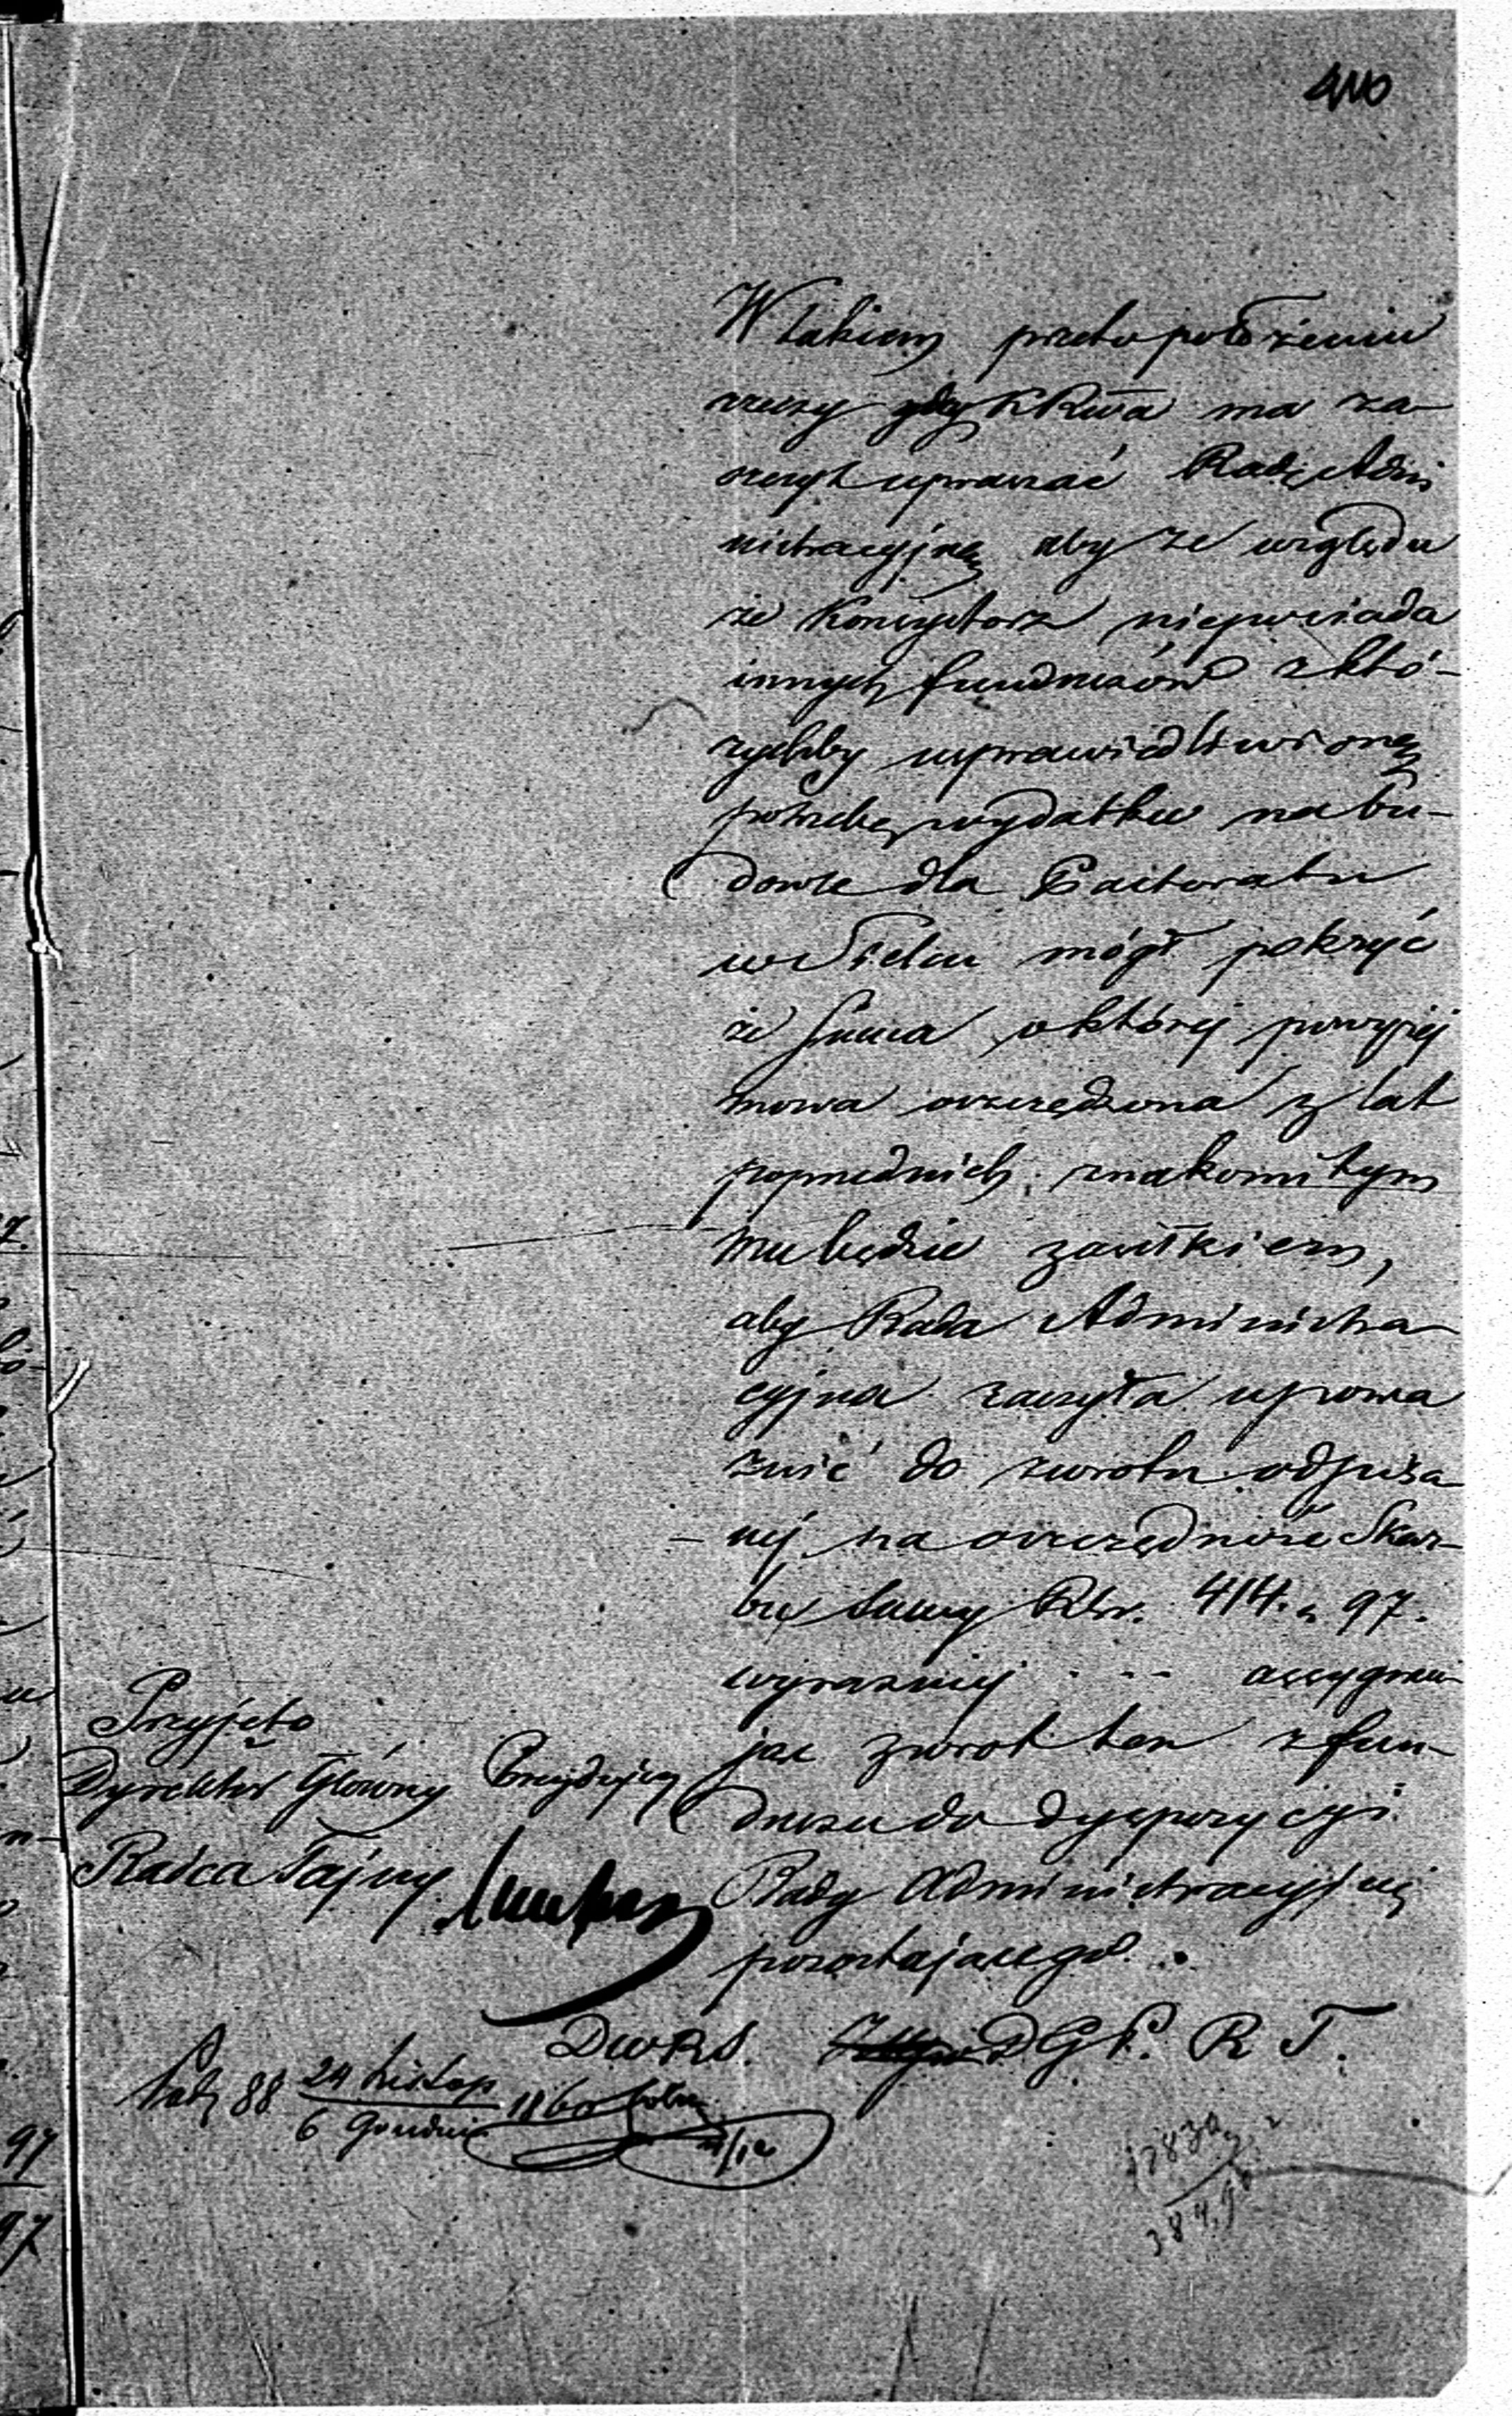 410
W takiem przeto położeniu
rzeczy gdy KRwa ma za-
szczyt upraszać Radę Admi
nistracyjną aby ze względu
że Konsystorz nieposiada
innych funduszów z któ-
rychby usprawiedliwioną
potrzebę wydatku na bu-
dowle dla Pastoratu
w Sielcu mógł pokryć
że Suma o której powyżej
mowa oszczędzona z lat
poprzednich znakomitym
mu będzie zasiłkiem,
aby Rada Administra-
cyjna raczyła upowa
żnić do zwrotu odpisa-
nej na oszczędność Skar-
bu Sumy Rbr. 414. k 97.
wyraźniej - - - assygnu-
jąc zwrot ten z fun-
duszu do dyspozycyi
Rady Administracyjnej
pozostającego.
Przyjęto
Dyrektor Główny Prezydujący
Radca Tajny
DwRS. D.G.P. R T.
88 24 Listop 1860
6 Grudnia